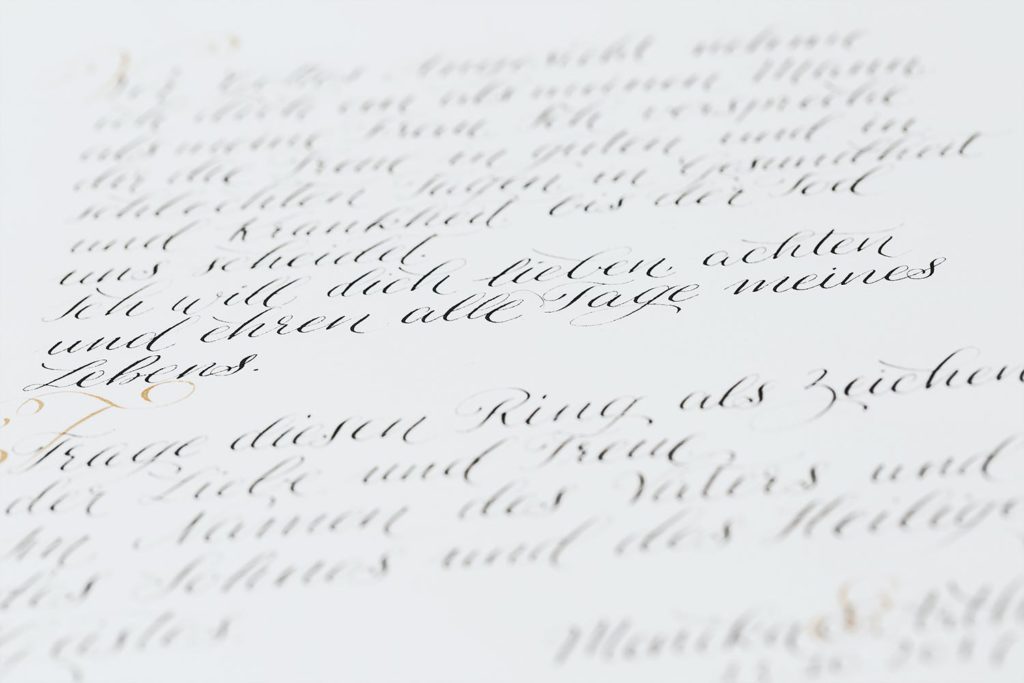 Vor Gottes Angesicht nehme
ich dich an als meinen Mann
als meine Frau Ich verspreche
dir die Treue in guten und in
schlechten Tagen in Gesundheit
und Krankheit bis der Tod
uns scheidet.
Ich will dich lieben, achten
und ehren alle Tage meines
Lebens.
Trage diesen Ring als Zeichen
der Liebe und Treue,
Im Namen des Vaters und
des Sohnes und des Heilige
Geistes
Monika &